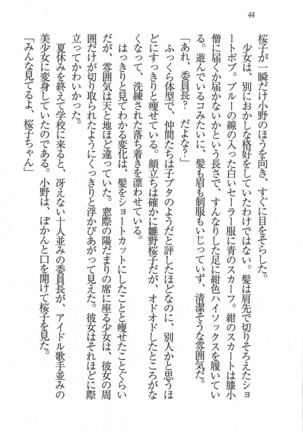 44
桜子が一瞬だけ小野のほうを向き、すぐに目をそらした。
少女は、別におかしな格好をしていたわけではない。髪は肩先で切りそろえたショ
ートボブ。ブルーの線の入った白いセーラー服に青のスカーフ。紺のスカートは膝小
僧に届くか届かないかという長さで、すんなりした足に紺色ハイソックスを履いてい
る。遊んでいるコみたいに、髪も眉も制服もいじっていず、清潔そうな雰囲気だ。
「あれ、委員長？　だよな？」
ふっくら体型で、仲間たちは子ブタのようだと評したほどなのに、別人かと思うほ
どすっきりと痩せている。顔立ちは確かに雛野桜子だが、オドオドしたところがな
くなって、洗練された落ち着きを漂わせている。
はっきりと見てわかる変化は、髪をショートカットにしたことと痩せたことぐらい
だが、雰囲気は天と地ほど違っていた。窓際の陽だまりの席に座る少女は、彼女の周
囲だけが切り取られたようにくっきりと浮かびあがって見えた。彼女はそれほどに際
立ってかわいかった。
夏休みを終えて学校に来ると、冴えない十人並みの委員長が、アイドル歌手並みの
美少女に変身していたのである。小野は、ぽかんと口を開けて桜子を見た。
「みんな見てるよ、桜子ちゃん」